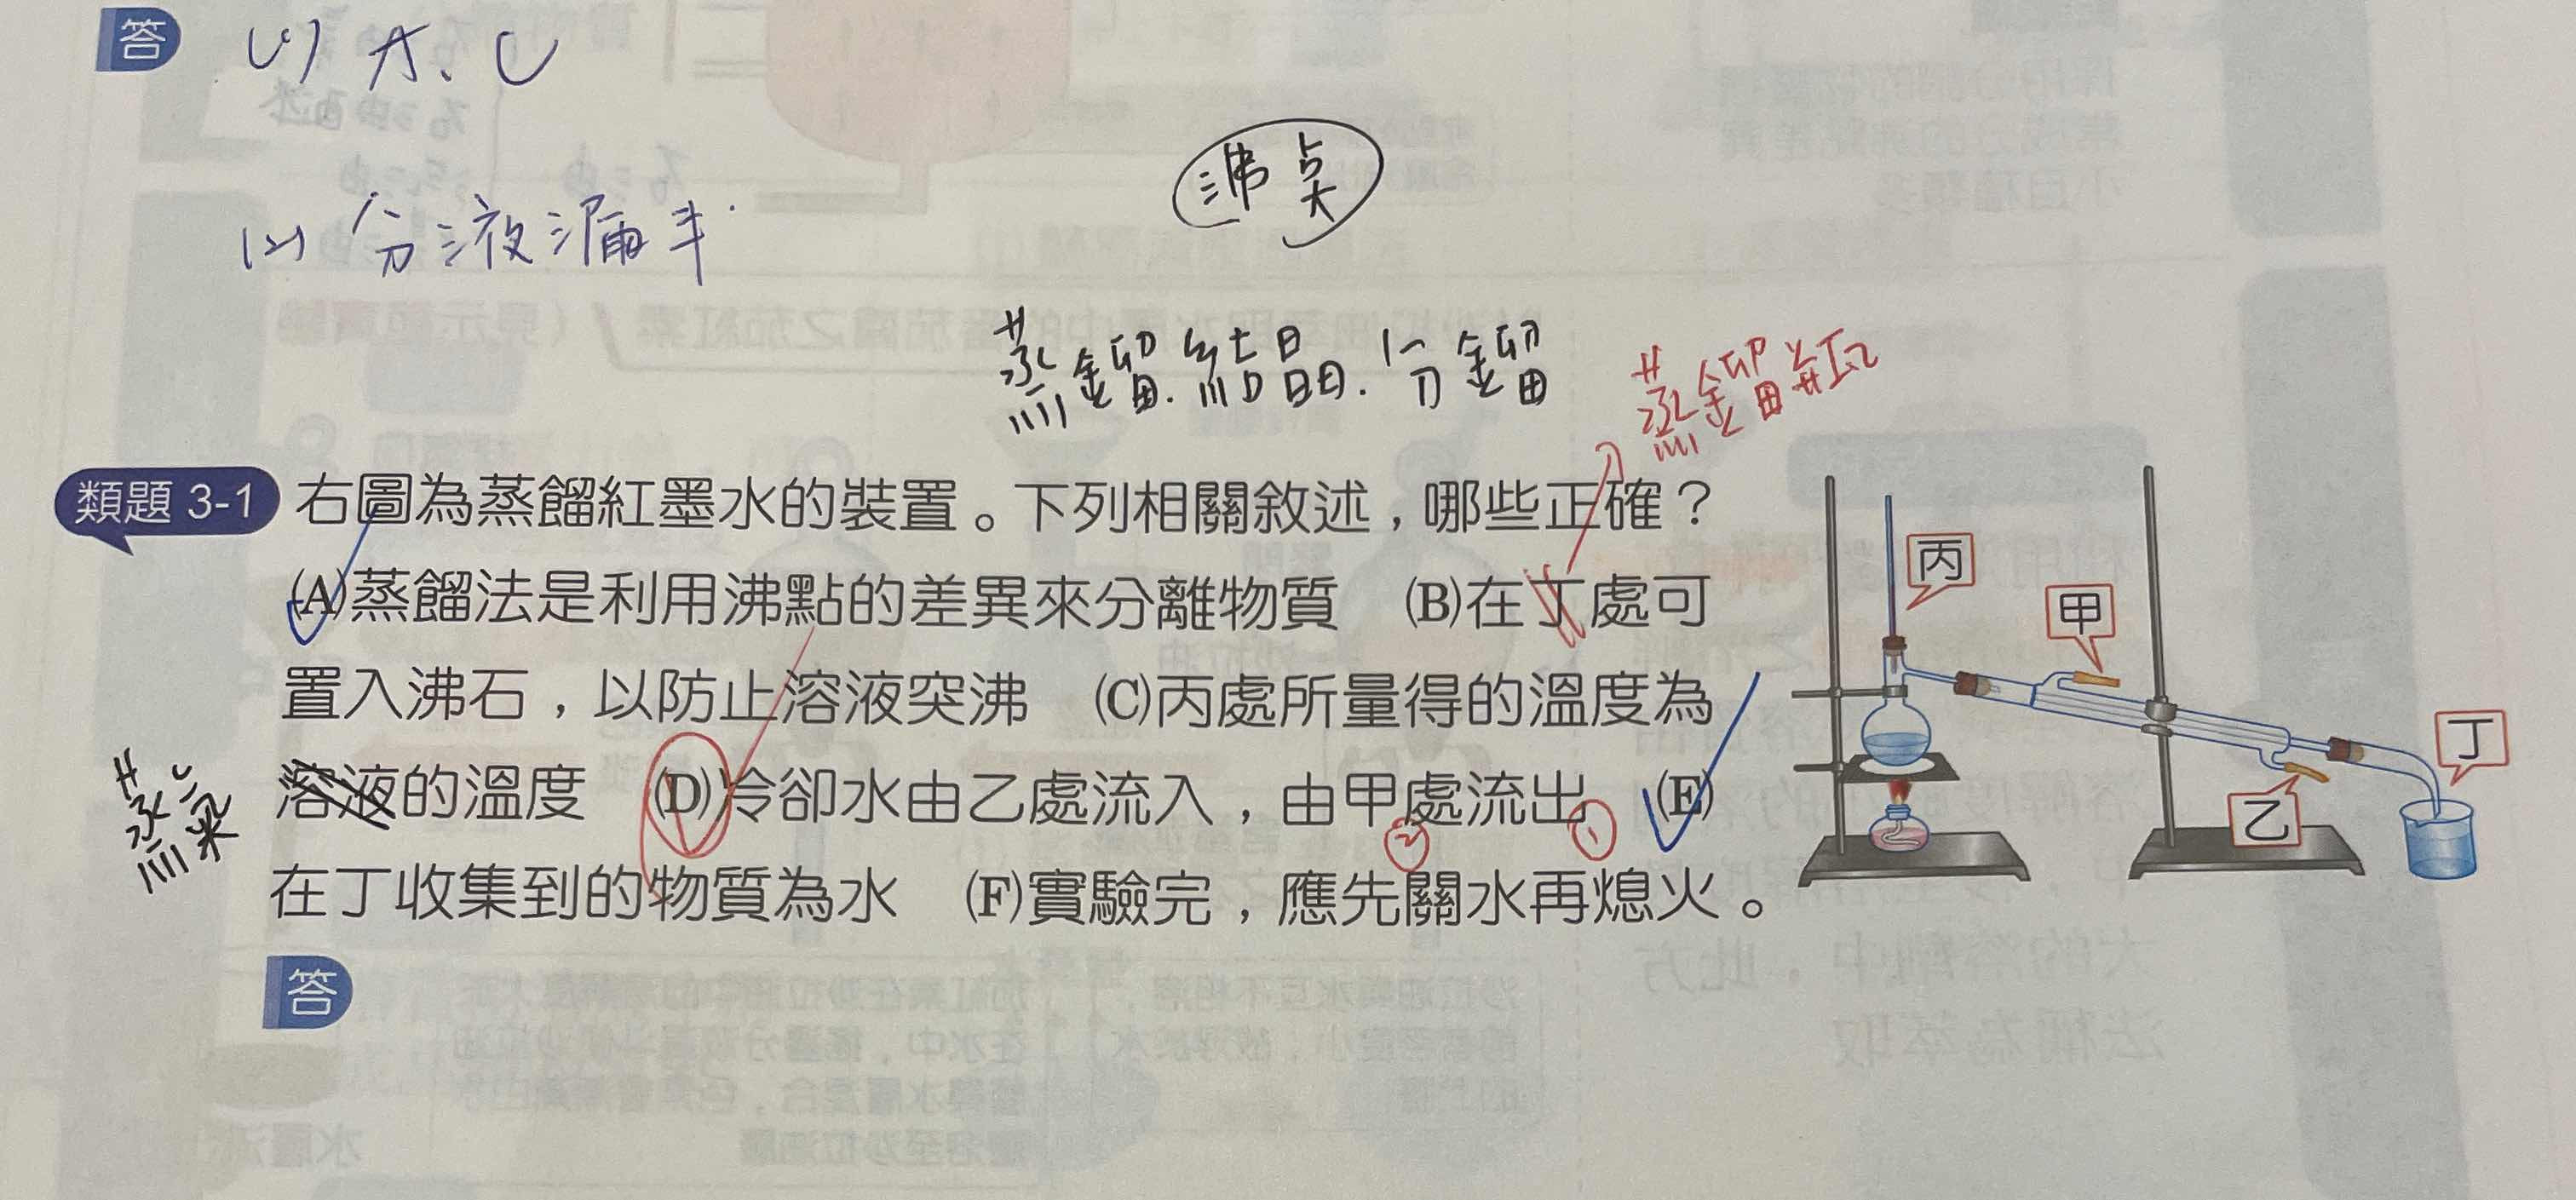 答 (1) A、C
(2) 分液漏斗
沸點
蒸餾.結晶.分餾
蒸餾瓶
類題 3-1 右圖為蒸餾紅墨水的裝置。下列相關敘述，哪些正確？
(A)蒸餾法是利用沸點的差異來分離物質 (B)在丁處可
置入沸石，以防止溶液突沸 (C)丙處所量得的溫度為
溶液的溫度 (D)冷卻水由乙處流入，由甲處流出 (E)
蒸氣
② ①
在丁收集到的物質為水 (F)實驗完，應先關水再熄火。
丙
甲
丁
乙
答